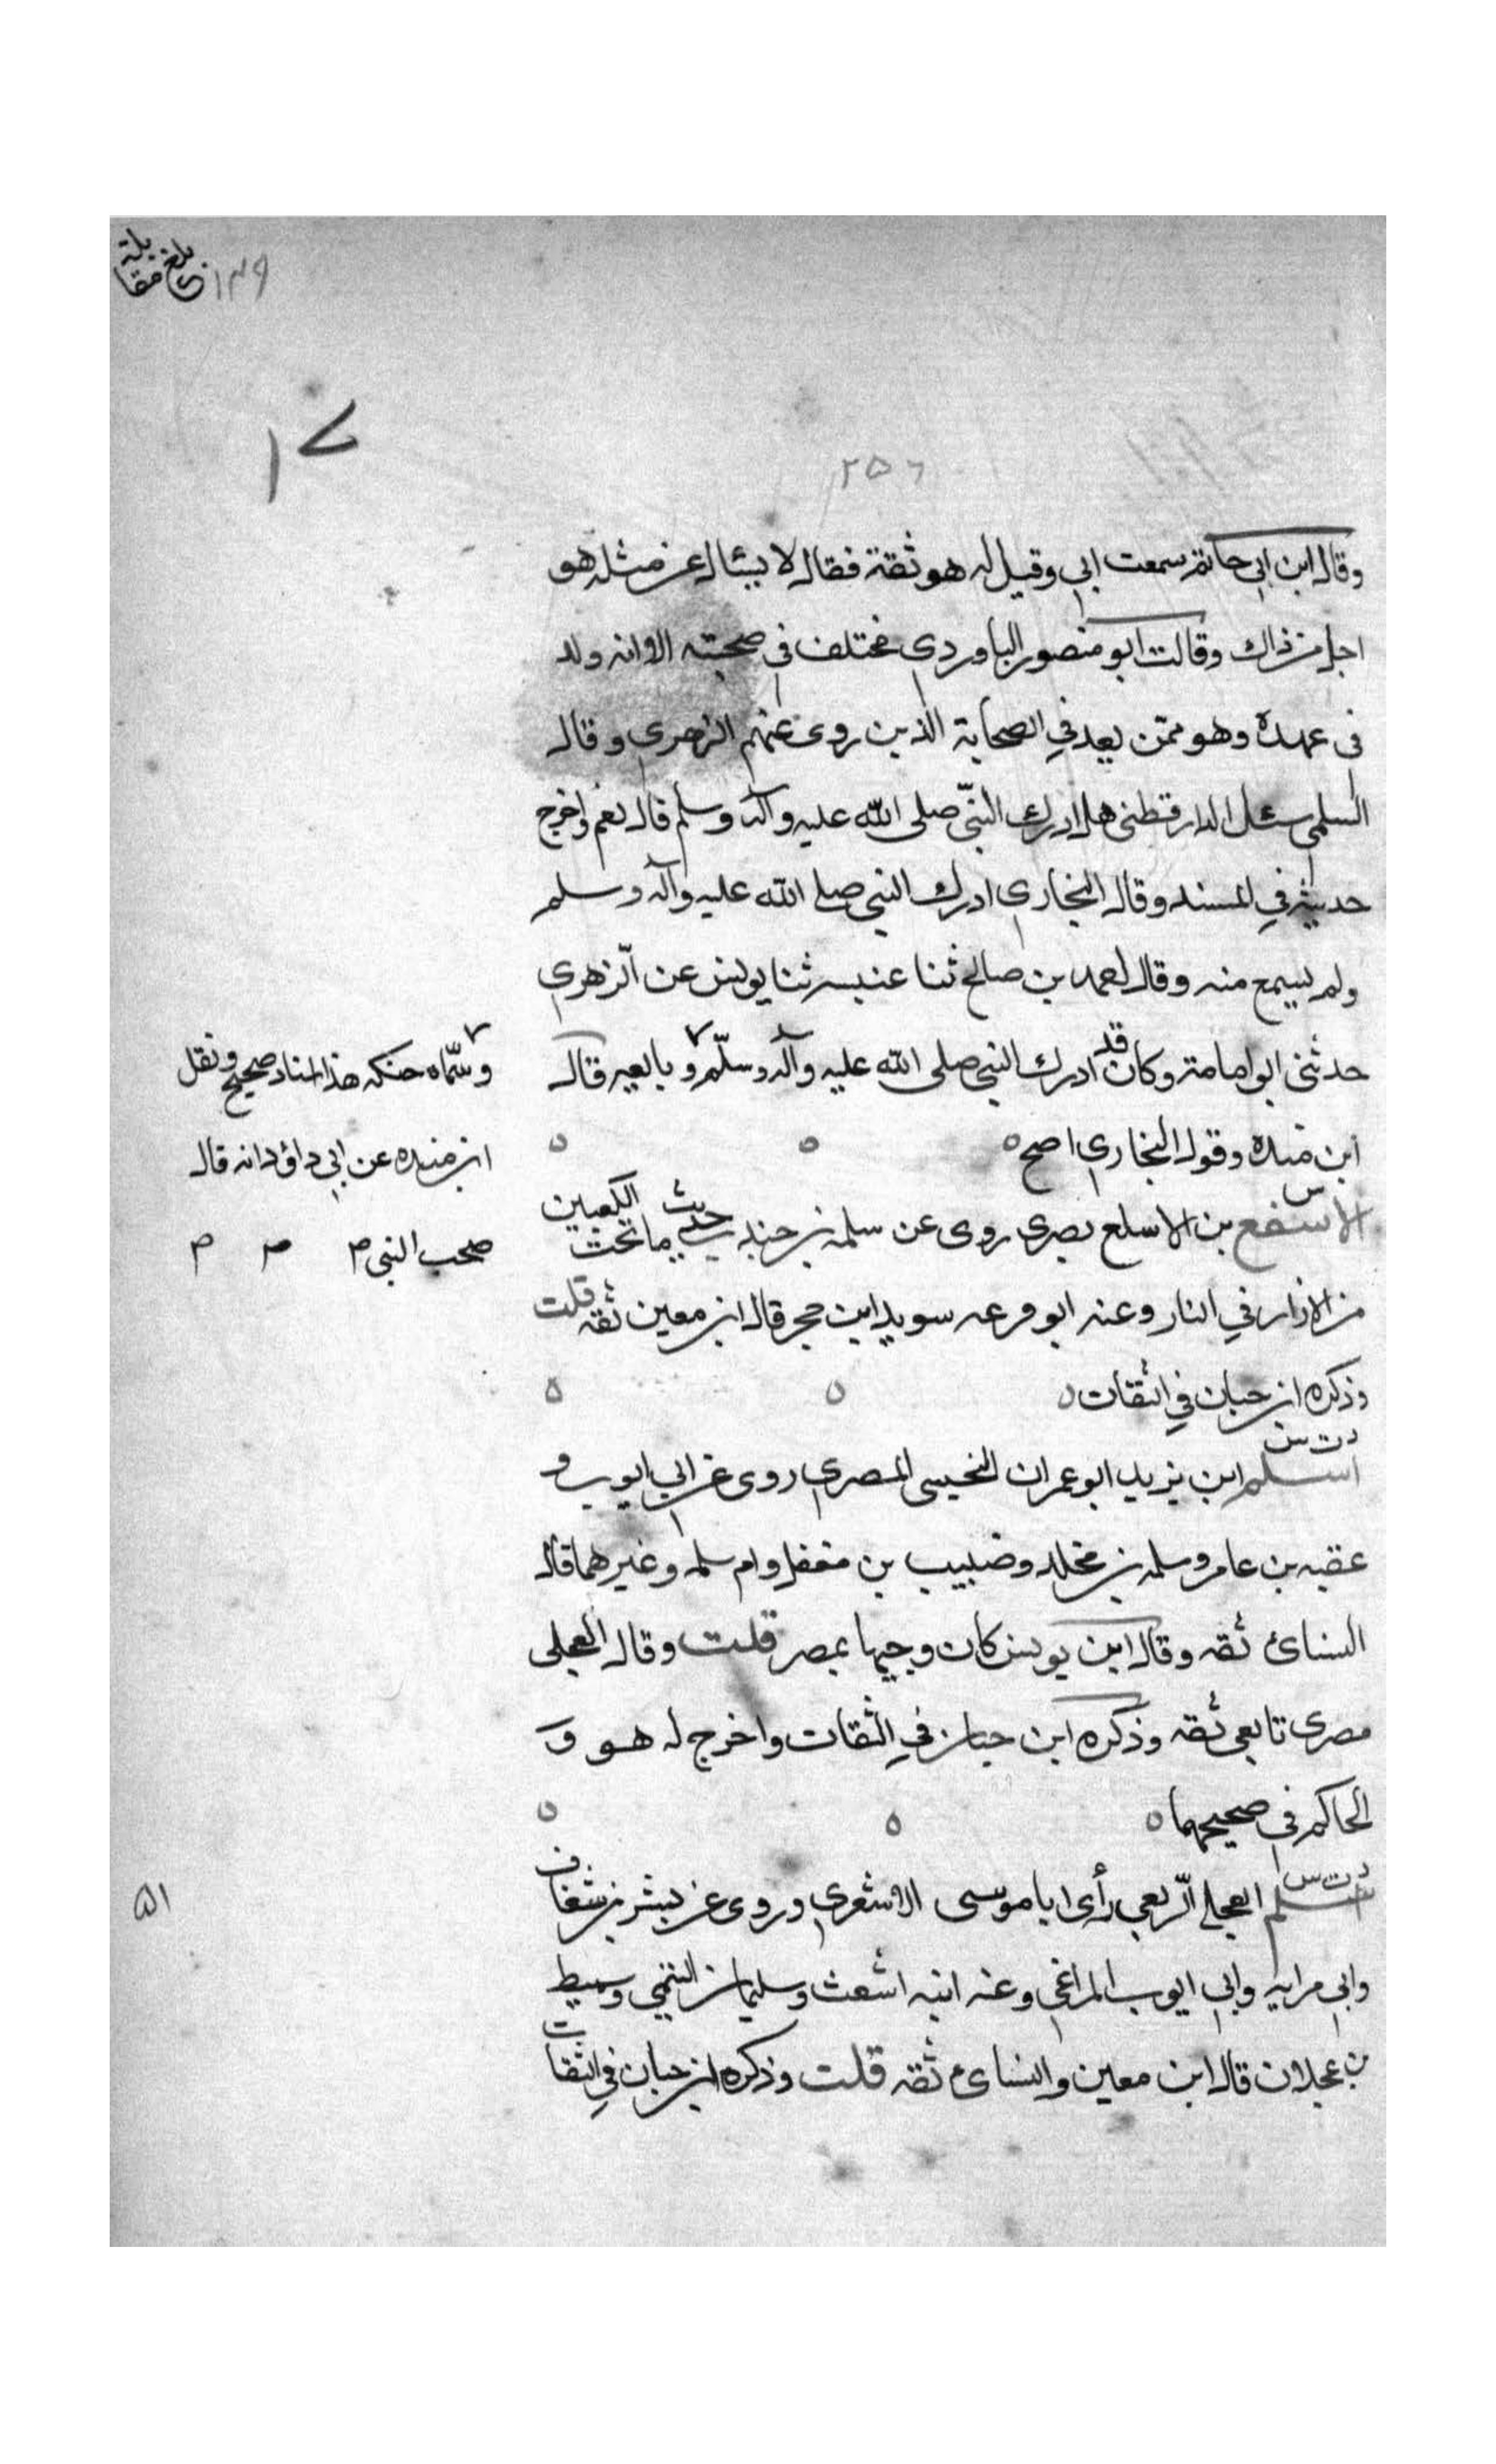 بلغ مقابلة
١٣٩
١٧
٢٥٦
وقال ابن ابي حاتم سمعت ابي وقيل له هو ثقة فقال لا يسٔال عن مثله هو
اجل من ذاك وقالت ابو منصور الباوردي مختلف في صحبته الا انه ولد
فى عهده وهو ممّن يعد في الصحابة الذين روى عنهم الزهري وقال
السلمي سئل الدارقطنى هل ادرك النبّي صلى الله عليه وآله وسلم قال نعم واخرج
حديثه في المسند وقال البخاري ادرك النبي صلى الله عليه وآله وسلم
ولم يسمع منه وقال احمد بن صالح ثنا عنبسه ثنا يونس عن الزّهري
حدثنى ابو امامة وكان قد ادرك النبي صلى الله عليه وآله وسلّم و بايعه قال
وسّماه حنكه هذا اسناد صحيح ونقل
ابن مندة وقول البخاري اصح
ابن منده عن ابي داؤد انه قال
صحب النبي م م م
س
الاسفع بن الاسلع بصرى روى عن سلمة بن جندب حديث ما تحت الكعبين
من الازار في النار وعنه ابو قزعه سويد ابن حجر قال ابن معين ثقه قلت
وذكره ابن حبان في الثقات
د ت س
اسلم ابن يزيد ابو عمران التجيبى المصري روى عن ابي ايوب و
عقبه بن عامر وسلمه بن مخلد وضبيب بن مغفل وام سلمه وغيرهما قال
النسائ ثقه وقال ابن يونس كان وجيها بمصر قلت وقال العجلى
مصرى تابعى ثقه وذكره ابن حبان في الثقات واخرج له هو و
الحاكم في صحيحهما
د ت س
اسلم العجلي الرّبعي رأى ابا موسى الاشعري وروى عن بشر بن شغاف
٥١
وابي مرايه وابي ايوب المراغي وعنه ابنه اشعث وسليمان التيمي وسميط
بن عجلان قال ابن معين والنسائ ثقه قلت وذكره ابن حبان في الثقات